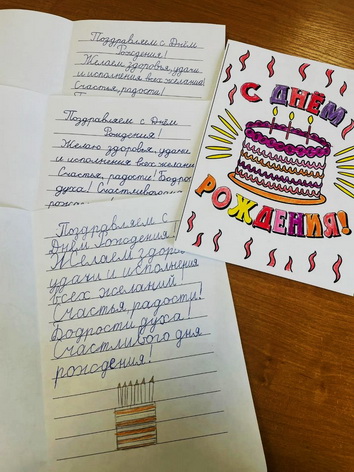 Поздравляем с Днём
Рождения!
Желаем здоровья, удачи
и исполнения всех желаний!
Счастья, радости!
Поздравляем с Днём
Рождения!
Желаю здоровья, удачи
и исполнения всех желани
Счастья, радости! Бодрос
духа! Счастливого
Поздравляем с
Днём Рождения!
Желаем здоро
удачи и исполнения
всех желаний!
Счастья, радости!
Бодрости духа!
Счастливого дня
рождения!
С ДНЁМ
РОЖДЕНИЯ!